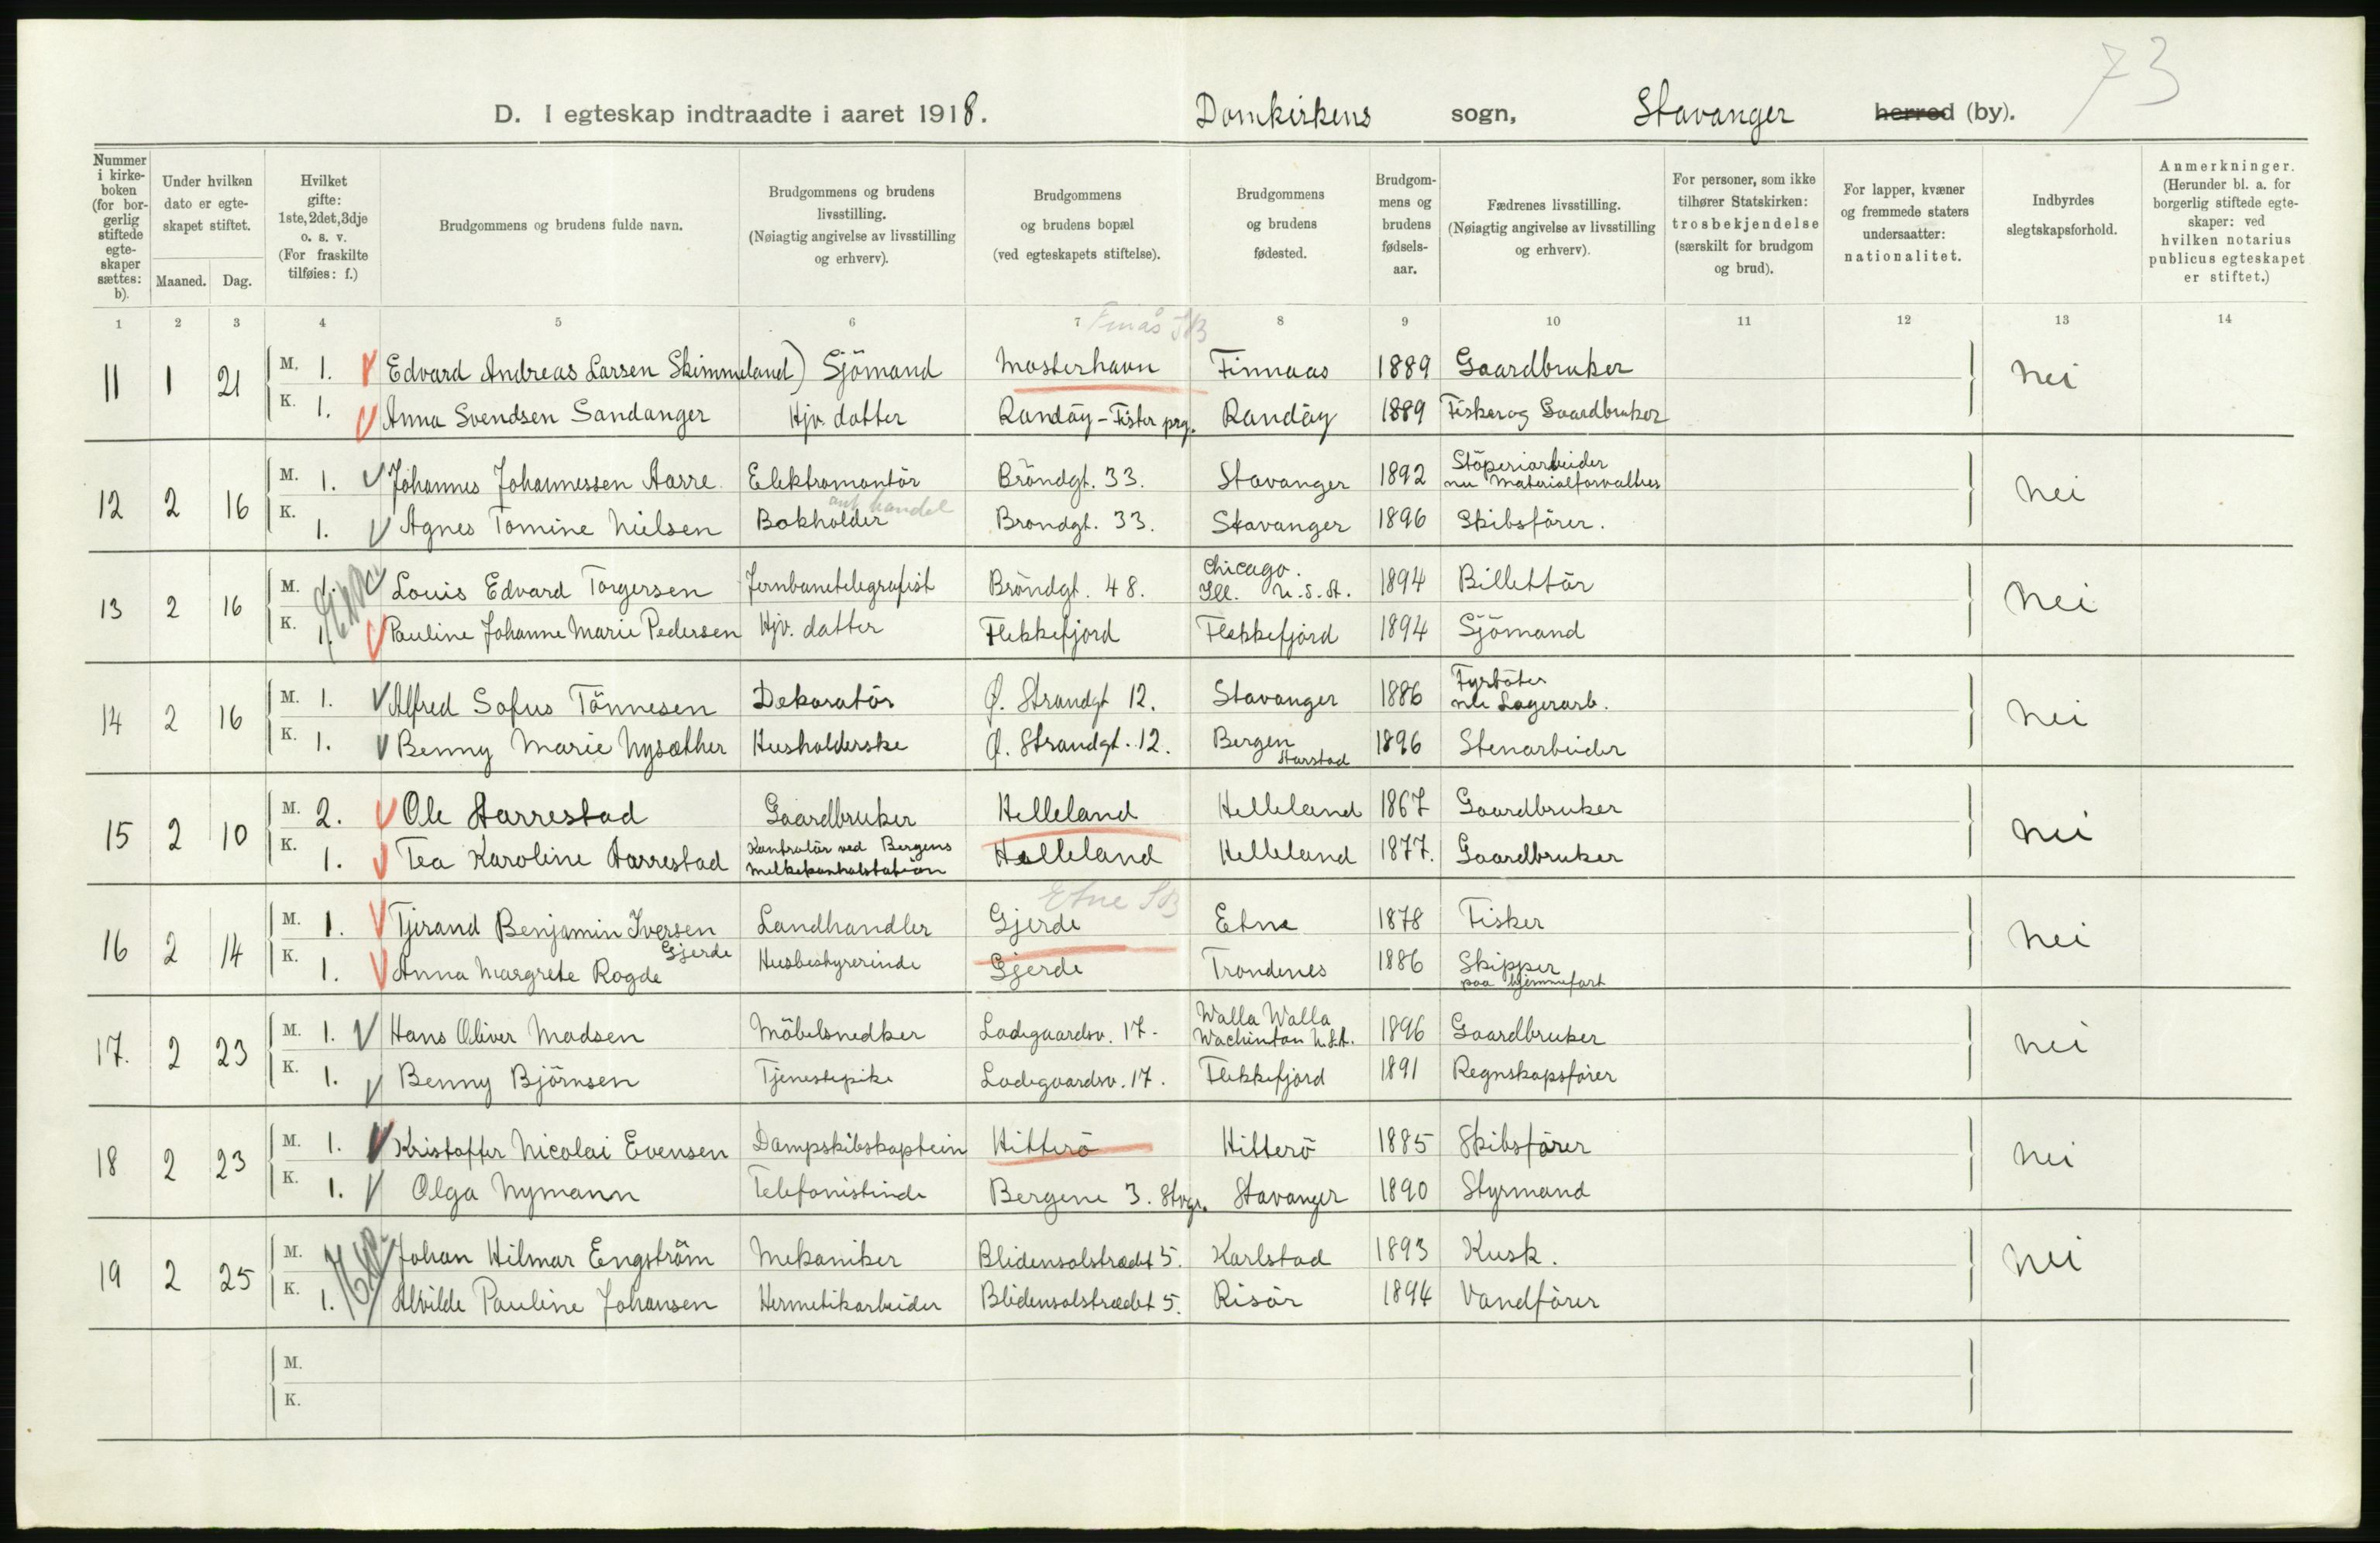 73
D. I egteskap indtraadte i aaret 1918. Domkirkens sogn, Stavanger herred (by).
Nummer i kirkeboken (for borgerlig stiftede egteskaper sættes: b).
Under hvilken dato er egteskapet stiftet.
Maaned. Dag.
Hvilket gifte: 1ste, 2det, 3dje o. s. v. (For fraskilte tilføies: f.)
Brudgommens og brudens fulde navn.
Brudgommens og brudens livsstilling. (Nøiagtig angivelse av livsstilling og erhverv).
Brudgommens og brudens bopæl (ved egteskapets stiftelse).
Brudgommens og brudens fødested.
Brudgommens og brudens fødselsaar.
Fædrenes livsstilling. (Nøiagtig angivelse av livsstilling og erhverv).
For personer, som ikke tilhører Statskirken: trosbekjendelse (særskilt for brudgom og brud).
For lapper, kvæner og fremmede staters undersaatter: nationalitet.
Indbyrdes slegtskapsforhold.
Anmerkninger. (Herunder bl. a. for borgerlig stiftede egteskaper: ved hvilken notarius publicus egteskapet er stiftet.)
1 2 3 4 5 6 7 8 9 10 11 12 13 14
Finås SB
11 1 21 M. 1. Edvard Andreas Larsen Skimmeland) Sjömand Mosterhavn Finnaas 1889 Gaardbruker Nei
K. 1. Anna Svendsen Sandanger Hjv. datter Randöy - Fister prg. Randöy 1889 Fisker og Gaardbruker
12 2 16 M. 1. Johannes Johannessen Aarre Elektromontör Bröndgt. 33. Stavanger 1892 Stöperiarbeider nu Materialforvalter Nei
K. 1. Agnes Tomine Nielsen Bokholder handel Bröndgt. 33. Stavanger 1896 Skibsförer.
13 2 16 M. 1. Louis Edvard Torgersen Jernbanetelegrafist Bröndgt. 48. Chicago. Ill. U.S.St. 1894 Billettör Nei
K. 1. Pauline Johanne Marie Pedersen Hjv. datter Flekkefjord Flekkefjord 1894 Sjömand
14 2 16 M. 1. Alfred Sofus Tönnesen Dekoratör Ø. Strandgt 12. Stavanger 1886 Fyrböter nu Lagerarb. Nei
K. 1. Benny Marie Nysæther Husholderske Ø. Strandgt. 12. Bergen Harstad 1896 Stenarbeider
15 2 10 M. 2. Ole Aarrestad Gaardbruker Helleland Helleland 1867 Gaardbruker Nei
K. 1. Tea Karoline Aarrestad Kontrolör ved Bergens melkekontrolstation Helleland Helleland 1877. Gaardbruker
Etne SB
16 2 14 M. 1. Tjerand Benjamin Iversen Gjerde Landhandler Gjerde Etne 1878 Fisker Nei
K. 1. Anna Margrete Rogde Husbestyrerinde Gjerde Trondenes 1886 Skipper paa hjemmefart
17. 2 23 M. 1. Hans Oliver Madsen Möbelsnedker Ladegaardsv. 17. Walla Walla Wachinton U.S.A. 1896 Gaardbruker Nei
K. 1. Benny Björnsen Tjenestepike Ladegaardsv. 17. Flekkefjord 1891 Regnskapsförer
18 2 23 M. 1. Kristoffer Nicolai Evensen Dampskibskaptein Hitterö Hitterö 1885 Skibsförer Nei
K. 1. Olga Nymann Telefonistinde Bergene 3. Stvgr. Stavanger 1890 Styrmand
19 2 25 M. Johan Hilmar Engström Mekaniker Blidensolstrædet 5. Karlstad 1893 Kusk. Nei
K. 1. Alvilde Pauline Johansen Hermetikarbeider Blidensolstrædet 5. Risör 1894 Vandförer
M.
K.